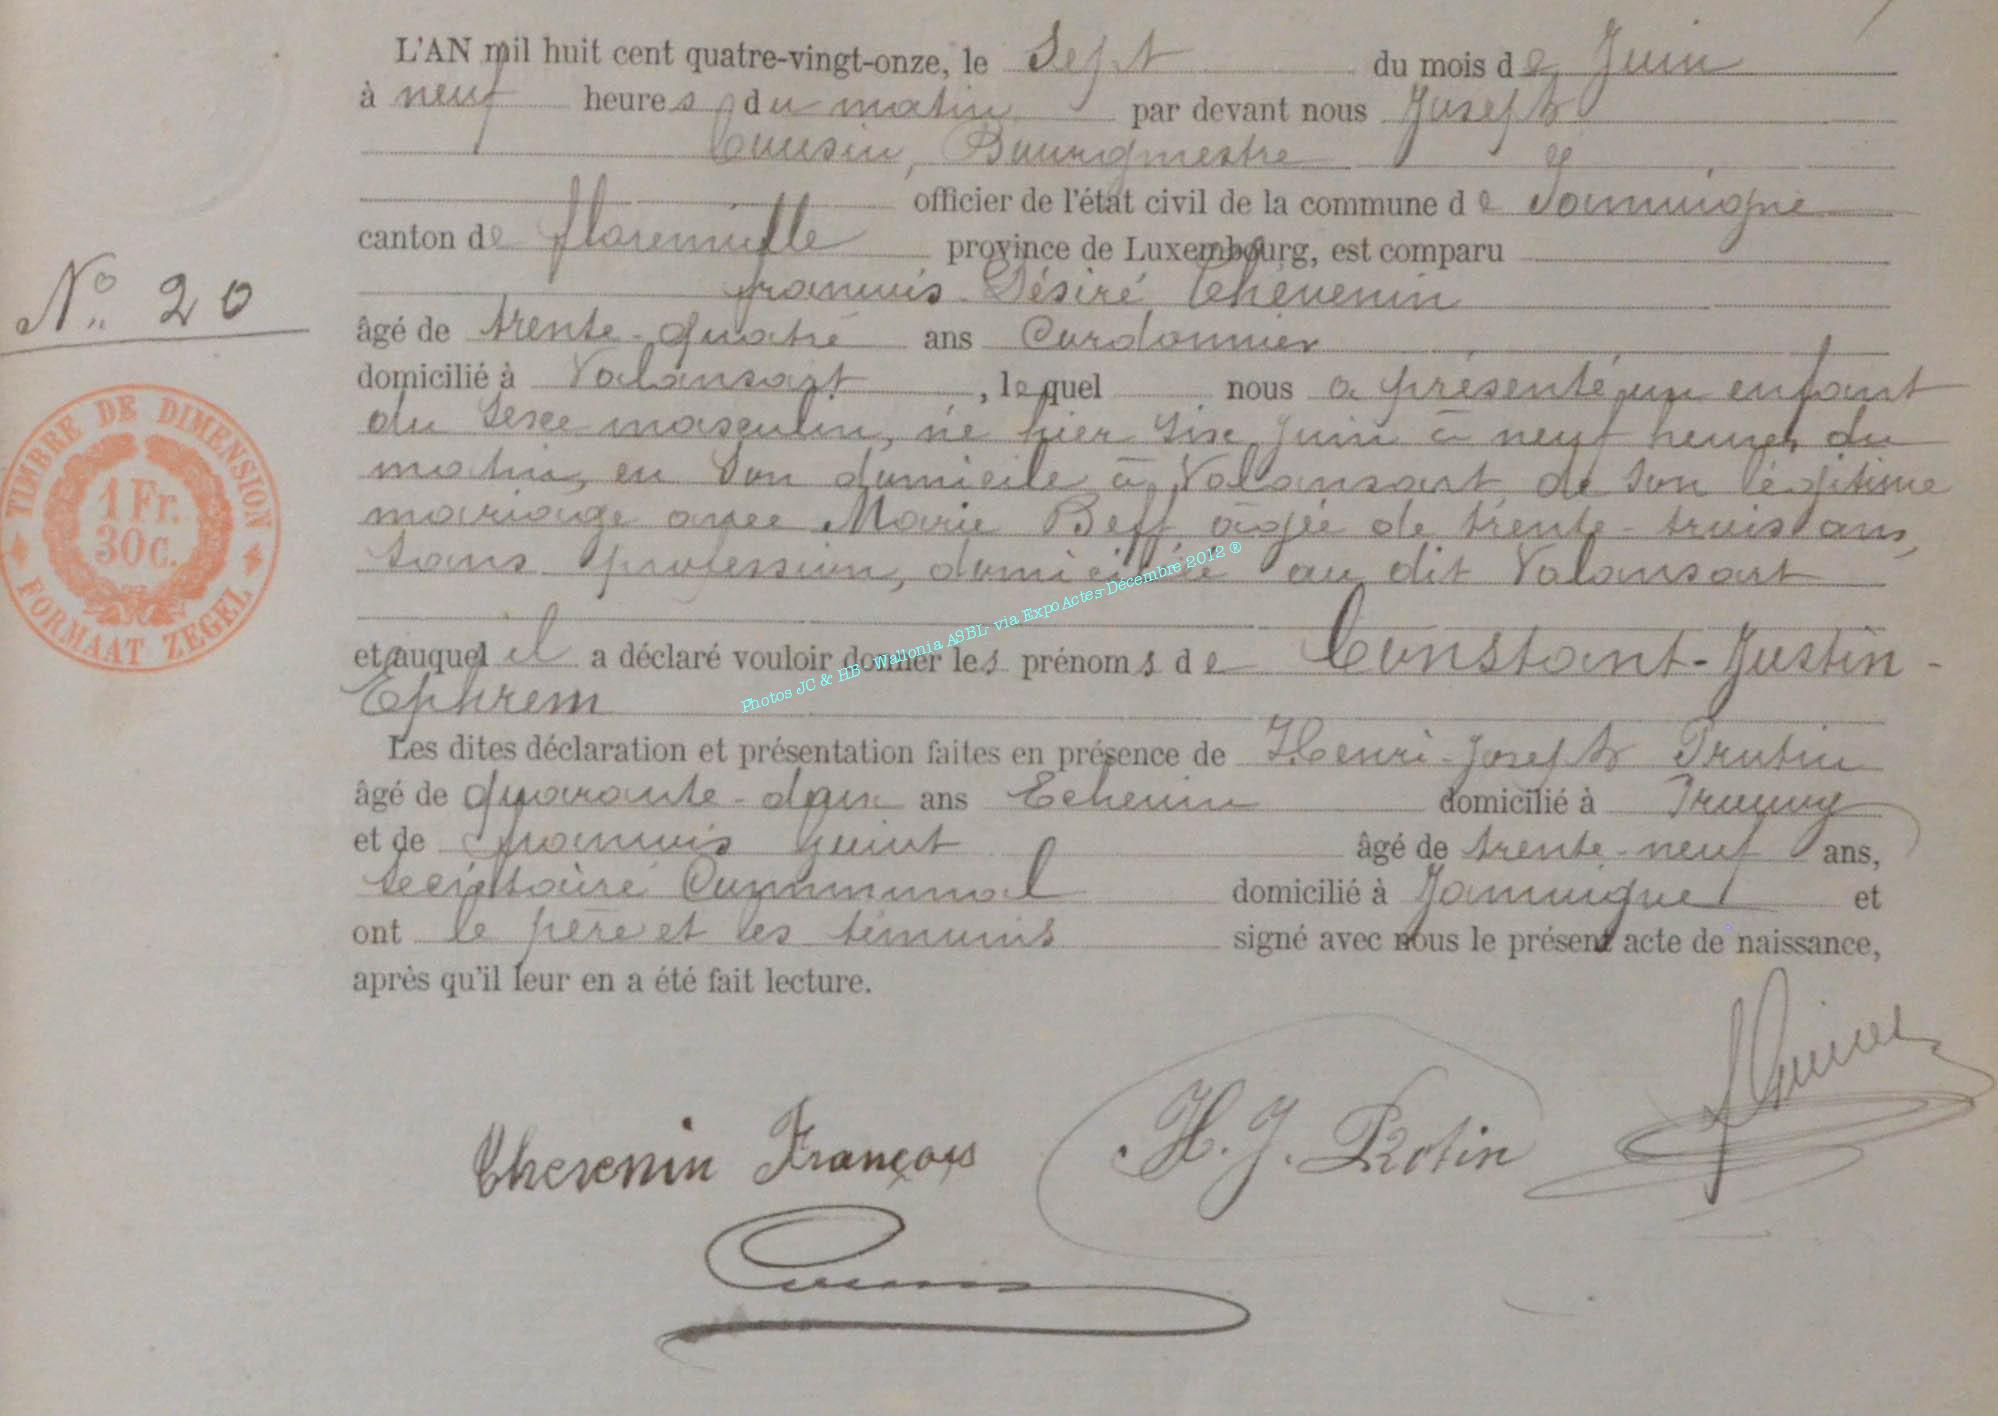 L'AN mil huit cent quatre-vingt-onze, le Sept du mois de Juin
à neuf heures du matin par devant nous Joseph
Cousin, Bourgmestre
officier de l'état civil de la commune de Jamoigne
canton de florenville province de Luxembourg, est comparu
françois Désiré Thévenin
âgé de trente-quatre ans Cordonnier
domicilié à Valansart, lequel nous a présenté un enfant
du Sexe masculin, né hier Six Juin à neuf heures du
matin, en Son domicile à Valansart, de Son légitime
mariage avec Marie Beff, âgée de trente-trois ans,
Sans profession, domiciliée au dit Valansart
et auquel il a déclaré vouloir donner les prénoms de Constant-Justin-
Ephrem
Les dites déclaration et présentation faites en présence de Henri-Joseph Protin
âgé de quarante-deux ans Echevin domicilié à Prouvy
et de françois Guiot âgé de trente-neuf ans,
Secrétaire Communal domicilié à Jamoigne et
ont le père et les témoins signé avec nous le présent acte de naissance,
après qu'il leur en a été fait lecture.
N° 20
TIMBRE DE DIMENSION
1 Fr.
30 c.
FORMAAT ZEGEL
Photos JC & HB-Wallonia ASBL- via ExpoActes-Décembre 2012 ®
Thevenin François
H. J. Protin